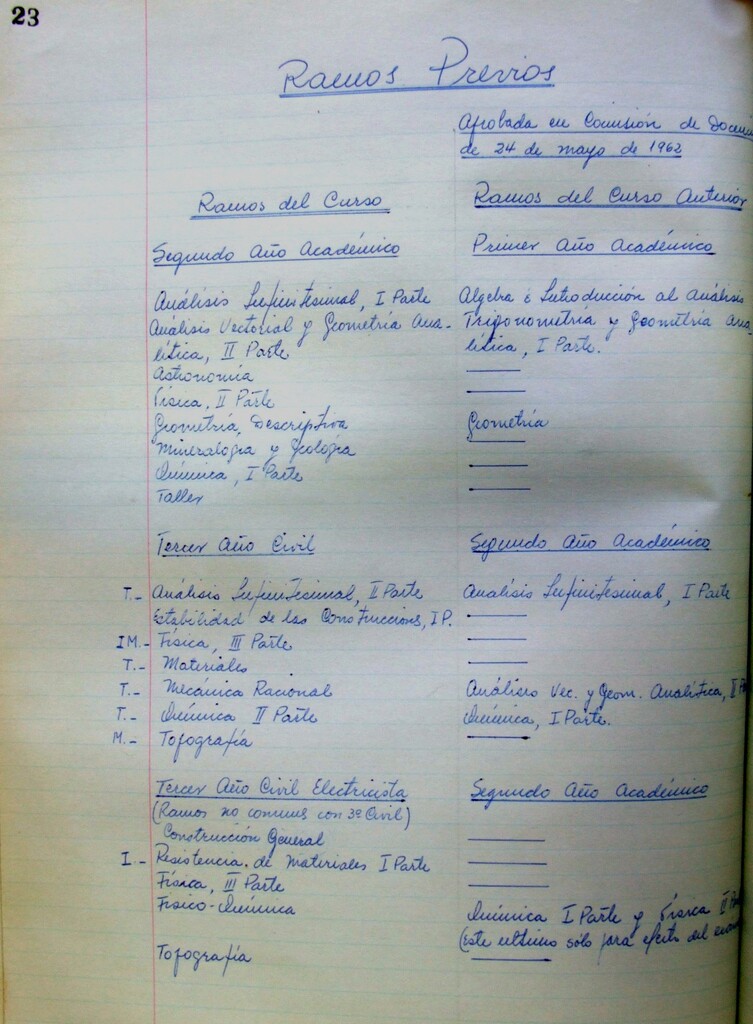 23
Ramos Previos
Aprobada en Comisión de
de 24 de mayo de 1962
Ramos del Curso
Ramos del Curso Anterior
Segundo Año Académico
Primer Año Académico
Análisis Infinitesimal, I Parte
Algebra é Introducción al Análisis
Análisis Vectorial y Geometría Ana-
Trigonometría y Geometría Ana-
lítica, II Parte
lítica, I Parte.
Astronomía
Física, II Parte
Geometría Descriptiva
Geometría
Mineralogía y Geología
Química, I Parte
Taller
Tercer Año Civil
Segundo Año Académico
T.- Análisis Infinitesimal, II Parte
Analisis Infinitesimal, I Parte
Estabilidad de las Construcciones, I P.
IM.- Física, III Parte
T.- Materiales
T.- Mecánica Racional
Análisis Vec. y Geom. Analítica, II
T.- Química II Parte
Química, I Parte.
M.- Topografía
Tercer Año Civil Electricista
Segundo Año Académico
(Ramos no comunes con 3º Civil)
Construcción General
I.- Resistencia de Materiales I Parte
Física, III Parte
Fisico-Química
Química I Parte y Física II
(Este último sólo para efecto del
Topografía